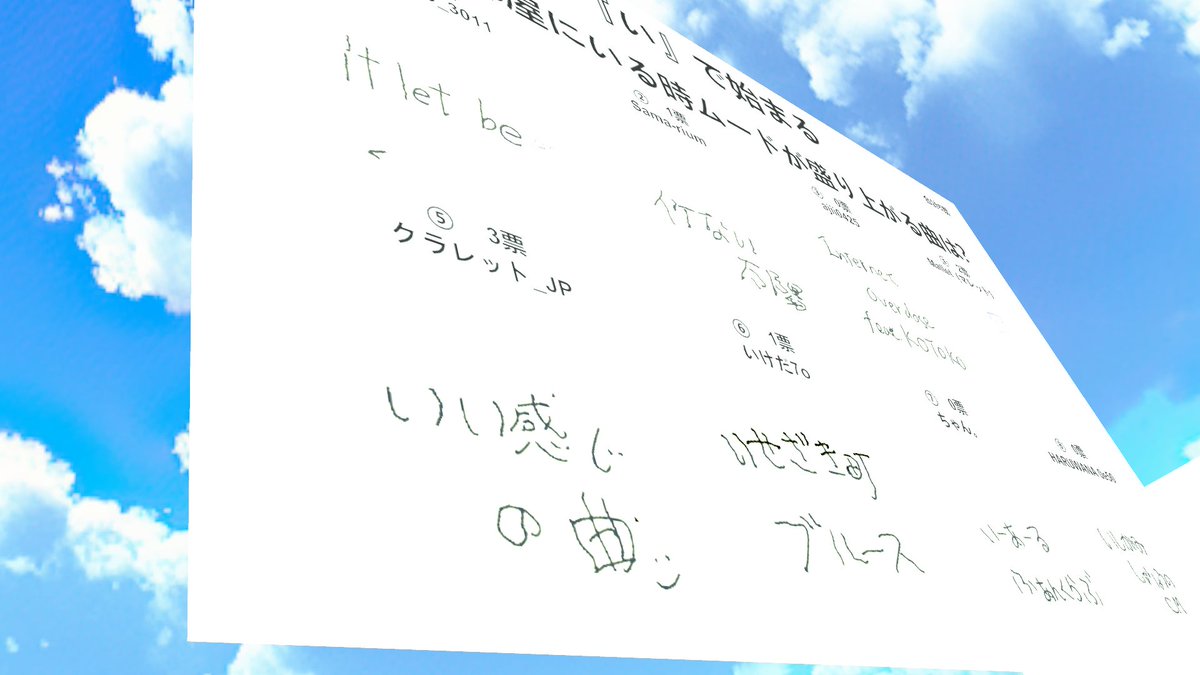 『い』で始まる
屋にいる時ムードが盛り上がる曲は?
_3011
it let be
② 1票
Sama-rium
イケない
太陽
0票
Internet
Overdose
feat. KOTOKO
2票
⑤ 3票
クラレット_JP
いい感じ
の曲
⑥ 1票
いけだ7o
いせざき町
ブルース
⑦ 0票
ちゃん。
いーあーる
ふぁんくらぶ
HARUWANA
CM